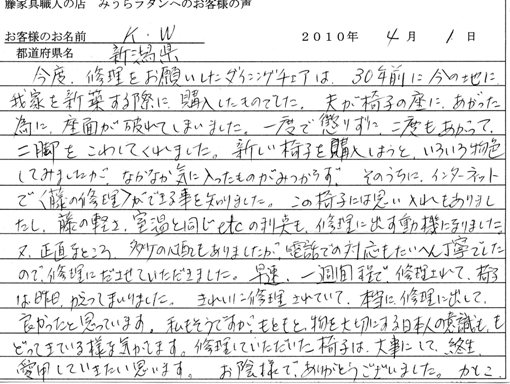 藤家具職人の店 みうらラタンへのお客様の声
お客様のお名前 K・W 2010年 4月 1日
都道府県名 新潟県
今度、修理をお願いしたダイニングチェアは、30年前に今の地に
我家を新築する際に、購入したものでした。夫が椅子の座に、あがった
為に、座面が破れてしまいました。一度で懲りずに、二度もあがって、
二脚をこわしてくれました。新しい椅子を購入しようと、いろいろ物色
してみましたが、なかなか気に入ったものがみつからず、そのうちに、インターネット
で〈藤の修理〉ができる事を知りました。この椅子には思い入れもありまし
たし、藤の軽さ、室温と同じetcの利点も、修理に出す動機になりました。
又、正直なところ、多少の心配もありましたが、電話での対応もたいへん丁寧でした
ので、修理にださせていただきました。早速、一週間程で、修理されて、椅子
は昨日、かえってまいりました。きれいに修理されていて、本当に、修理に出して、
良かったと思っています。私もそうですが、もともと、物を大切にする日本人の意識も、も
どってきている様な気がします。修理していただいた椅子は、大事にして、終生、
愛用していきたい思います。お陰様で、ありがとうございました。かしこ